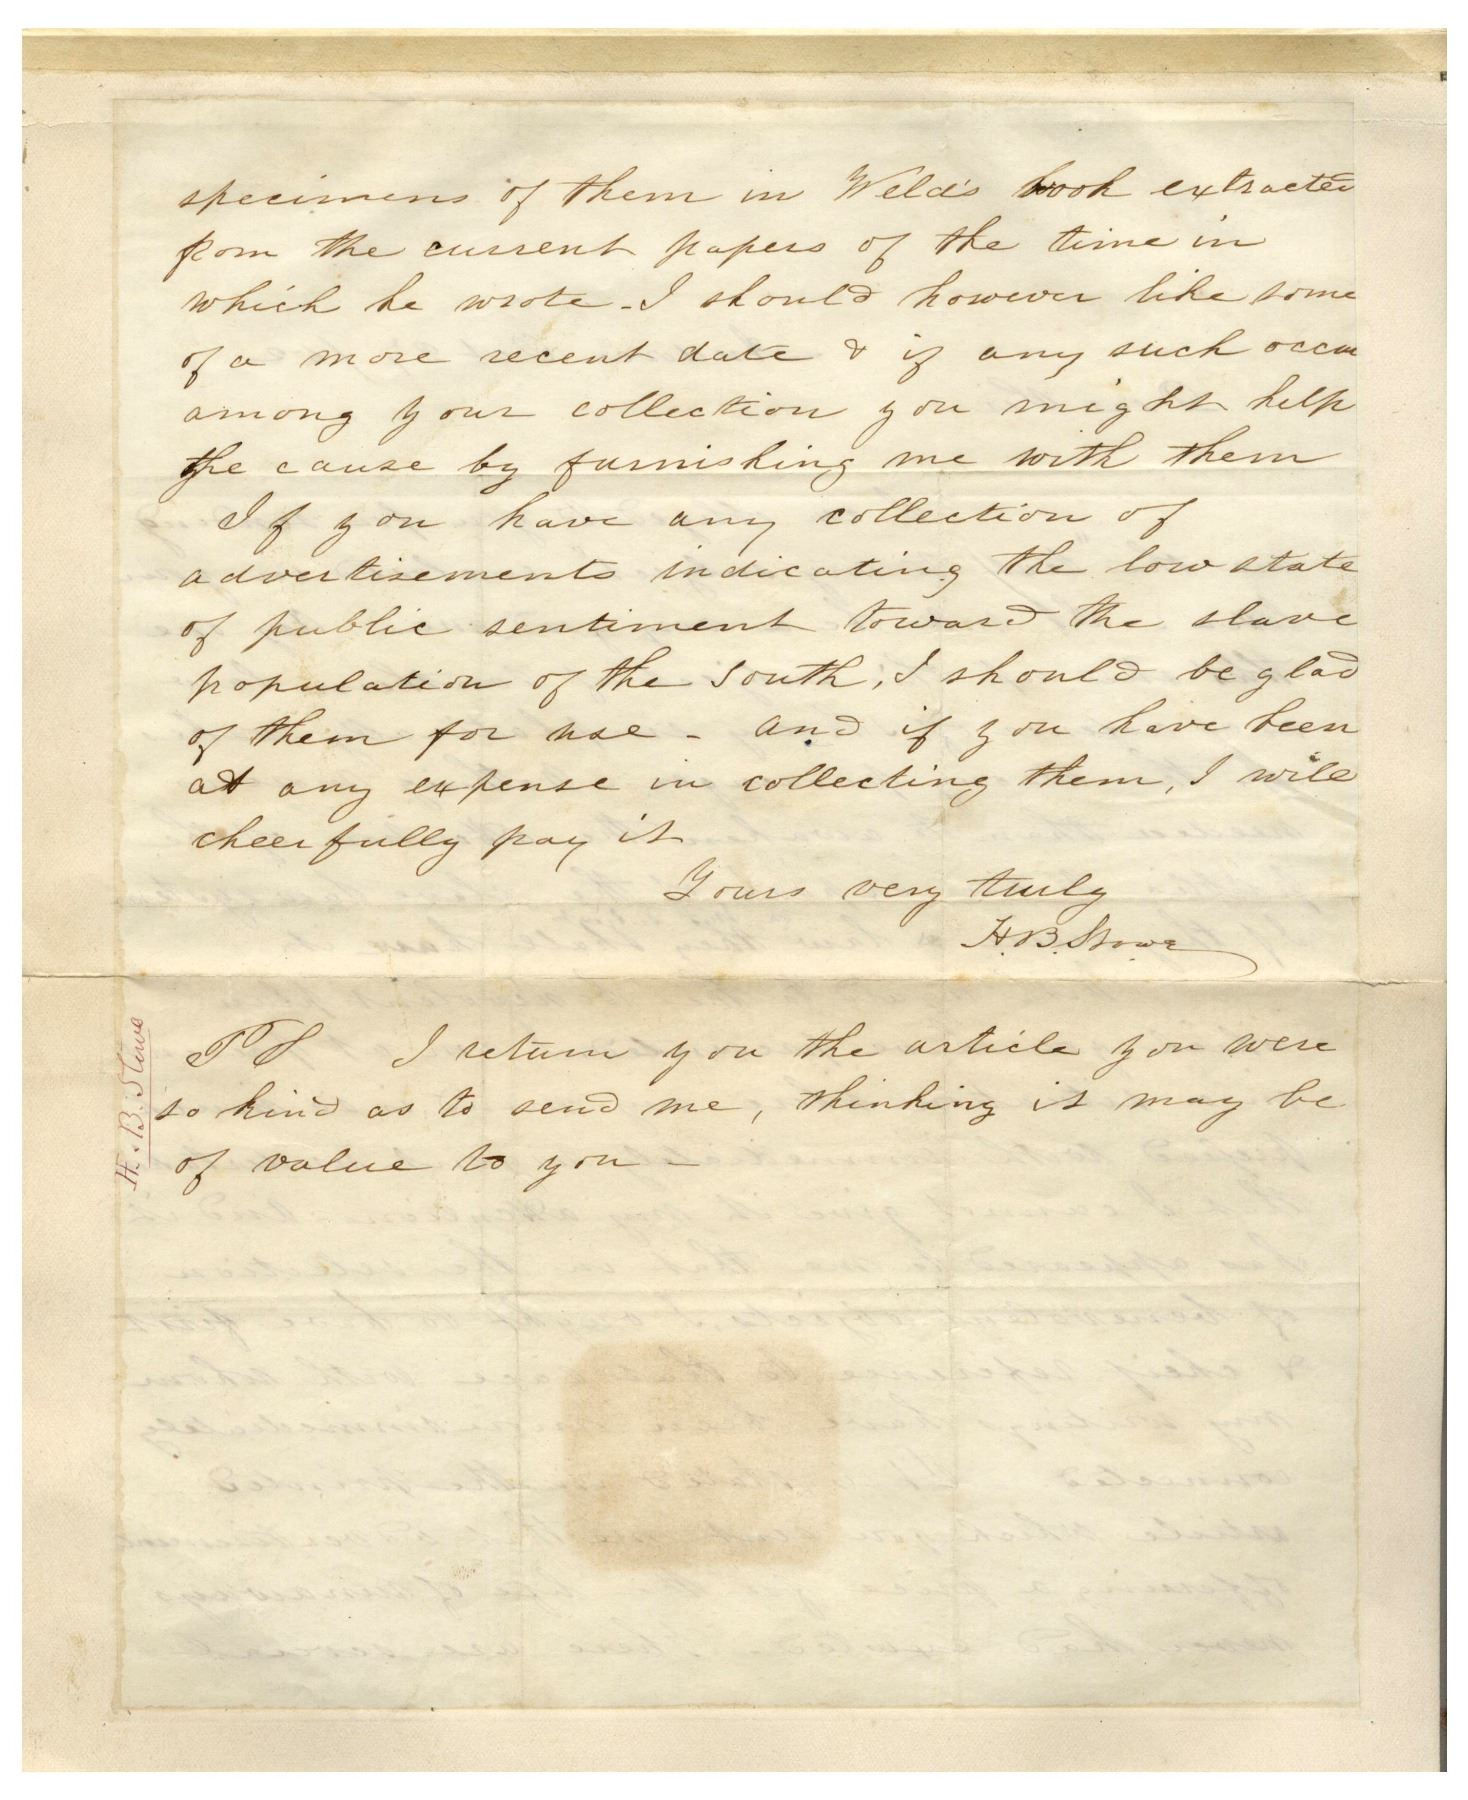 specimens of them in Weld's book extracted
from the current papers of the time in
which he wrote - I should however like some
of a more recent date & if any such occur
among your collection you might help
the cause by furnishing me with them
If you have any collection of
advertisements indicating the low state
of public sentiment toward the slave
population of the South, I should be glad
of them for use - and if you have been
at any expense in collecting them, I will
cheerfully pay it
Yours very truly
H. B. Stowe
H. B. Stowe
PS I return you the article you were
so kind as to send me, thinking it may be
of value to you -